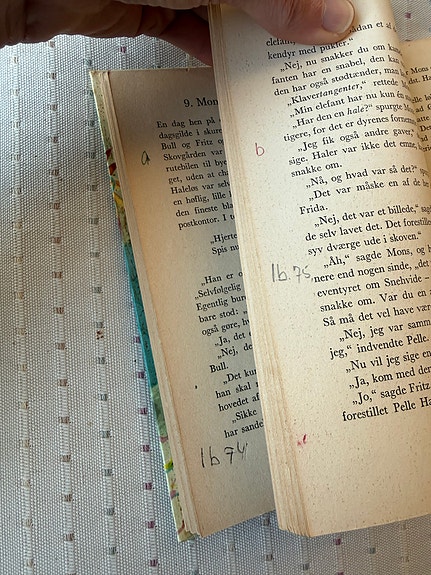 9. Mon
En dag hen på
dagsgilde i skure
Bull og Fritz o
Skovgården var
rutebilen til bye
get, uden at cha
Haleløs var selv
en høflig, lille
den fineste bla
postkontor. I t
„Hjerte
Spis nu
„Han er o
„Selvfølgelig
Egentlig burd
bare stod: "
også gøre, hv
„Ja, det
„Nej, de
Bull.
„Det kun
han skal
hovedet af
„Sikke
har sande
a
1b 74
elefant,
kendyr med pukler."
„Nej, nu snakker du om kam
fanten har en snabel, den kan
den har også stodtænder, man
„Klavertangenter," rettede
„Min elefant har nu kun én
„Har den en hale?" spurgte
tigere, for det er dyrenes fornem
„Jeg fik også andre gaver,"
sige. Haler var ikke det emne,
snakke om.
„Nå, og hvad var så det?" spu
„Det var måske en af de her
Frida.
„Nej, det var et billede," sagd
de selv lavet det. Det forestille
syv dværge ude i skoven."
„Åh," sagde Mons, og h
nere end nogen sinde, „det
eventyret om Snehvide –
snakke om. Var du en a
Så må det vel have vær
„Nej, jeg var samm
jeg," indvendte Pelle.
„Nu vil jeg sige en
„Ja, kom med den
„Jo," sagde Fritz
forestillet Pelle Ha
b
1b.75